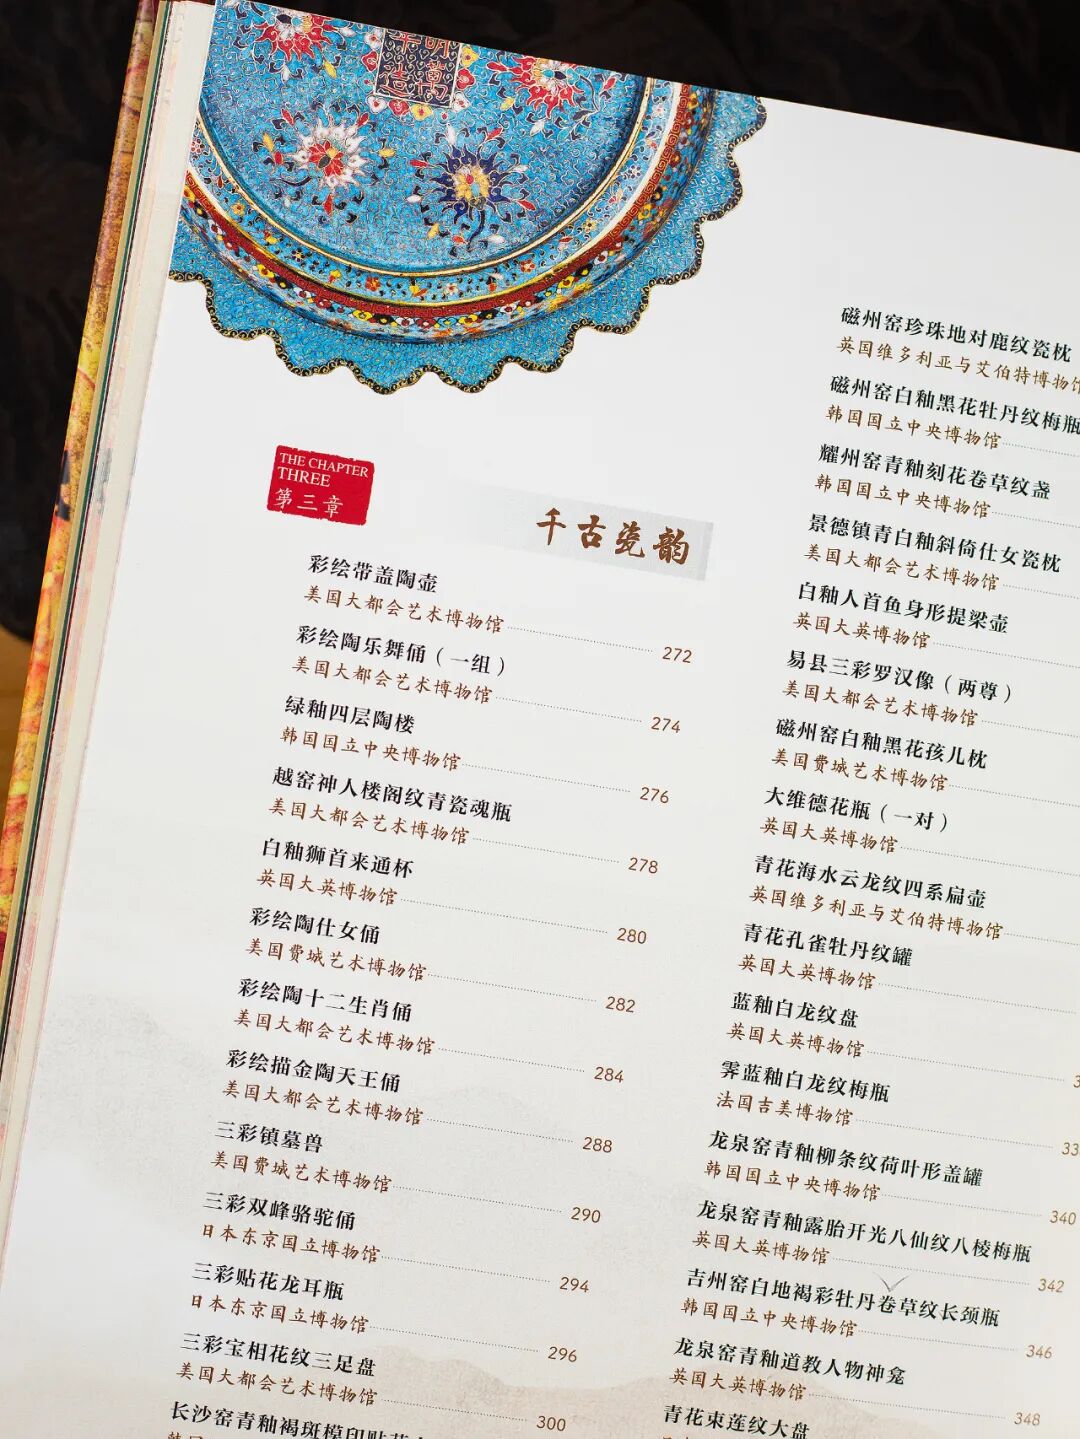 THE CHAPTER
THREE
第三章
千古瓷韵
彩绘带盖陶壶
美国大都会艺术博物馆 272
彩绘陶乐舞俑（一组）
美国大都会艺术博物馆 274
绿釉四层陶楼
韩国国立中央博物馆 276
越窑神人楼阁纹青瓷魂瓶
美国大都会艺术博物馆 278
白釉狮首来通杯
英国大英博物馆 280
彩绘陶仕女俑
美国费城艺术博物馆 282
彩绘陶十二生肖俑
美国大都会艺术博物馆 284
彩绘描金陶天王俑
美国大都会艺术博物馆 288
三彩镇墓兽
美国费城艺术博物馆 290
三彩双峰骆驼俑
日本东京国立博物馆 294
三彩贴花龙耳瓶
日本东京国立博物馆 296
三彩宝相花纹三足盘
美国大都会艺术博物馆 300
长沙窑青釉褐斑模印贴花
磁州窑珍珠地对鹿纹瓷枕
英国维多利亚与艾伯特博物馆
磁州窑白釉黑花牡丹纹梅瓶
韩国国立中央博物馆
耀州窑青釉刻花卷草纹盏
韩国国立中央博物馆
景德镇青白釉斜倚仕女瓷枕
美国大都会艺术博物馆
白釉人首鱼身形提梁壶
英国大英博物馆
易县三彩罗汉像（两尊）
美国大都会艺术博物馆
磁州窑白釉黑花孩儿枕
美国费城艺术博物馆
大维德花瓶（一对）
英国大英博物馆
青花海水云龙纹四系扁壶
英国维多利亚与艾伯特博物馆
青花孔雀牡丹纹罐
英国大英博物馆
蓝釉白龙纹盘
英国大英博物馆
霁蓝釉白龙纹梅瓶
法国吉美博物馆
龙泉窑青釉柳条纹荷叶形盖罐
韩国国立中央博物馆 340
龙泉窑青釉露胎开光八仙纹八棱梅瓶
英国大英博物馆 342
吉州窑白地褐彩牡丹卷草纹长颈瓶
韩国国立中央博物馆 346
龙泉窑青釉道教人物神龛
英国大英博物馆 348
青花束莲纹大盘